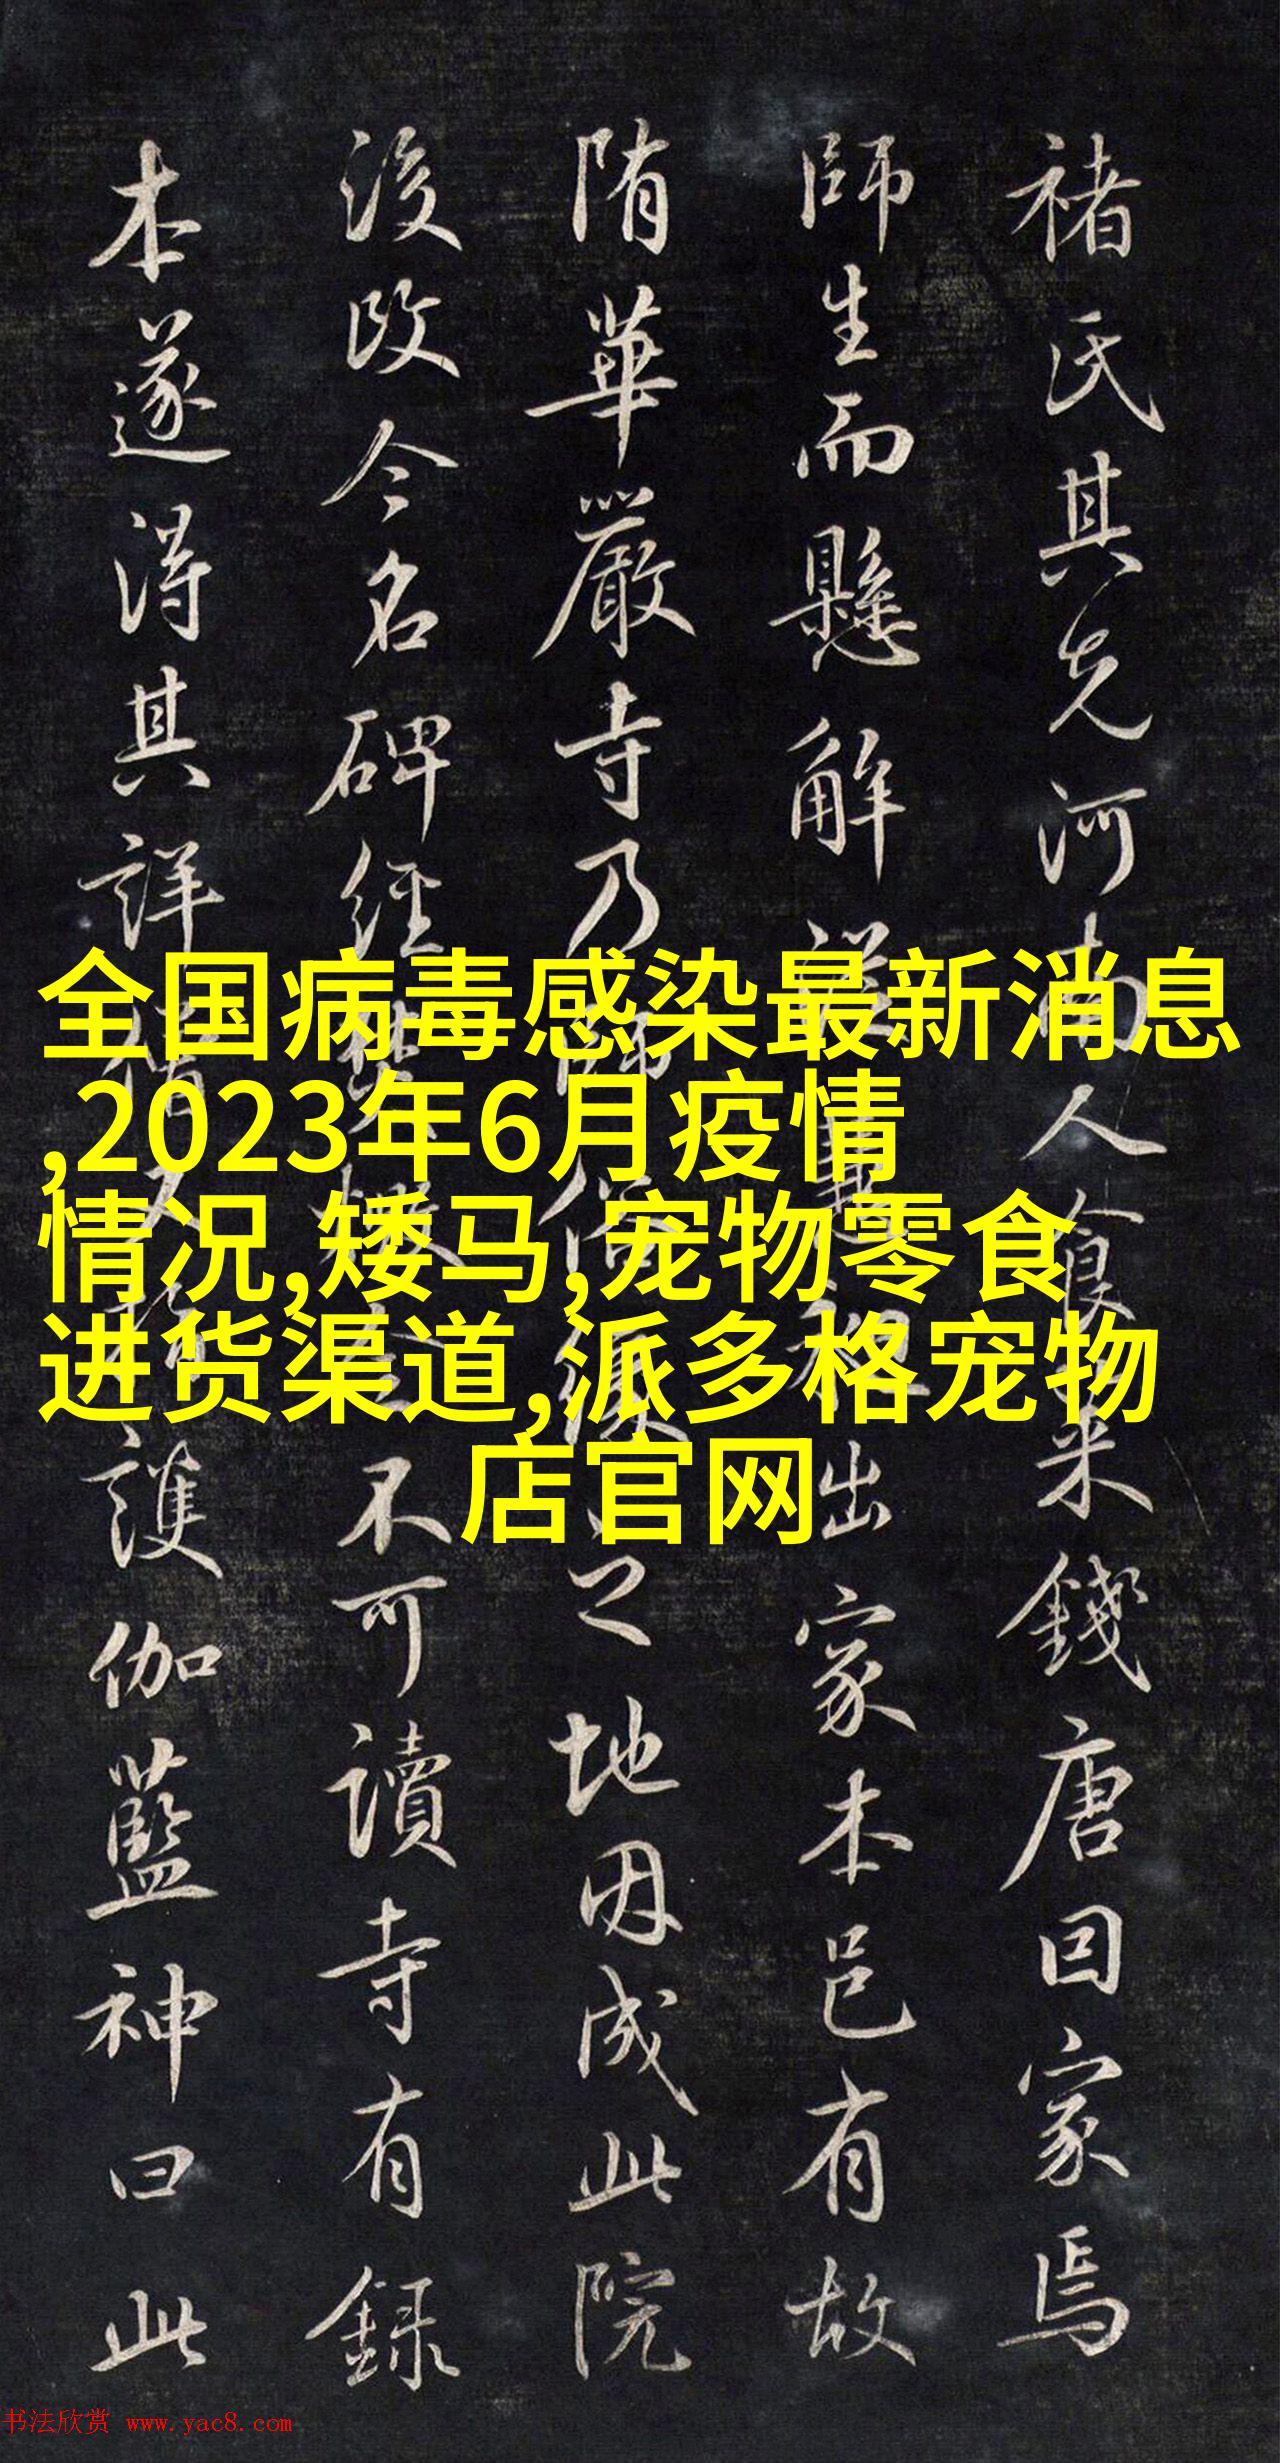 褚氏其先河南人食采錢唐因家焉
師生而懸解出家本邑有故
隋華嚴寺乃師之地因成此院
後改今名碑經不可讀寺有録
本遂得其詳護伽藍神曰此
全国病毒感染最新消息
,2023年6月疫情
情况,矮马,宠物零食
进货渠道,派多格宠物
店官网
书法欣赏 www.yac8.com